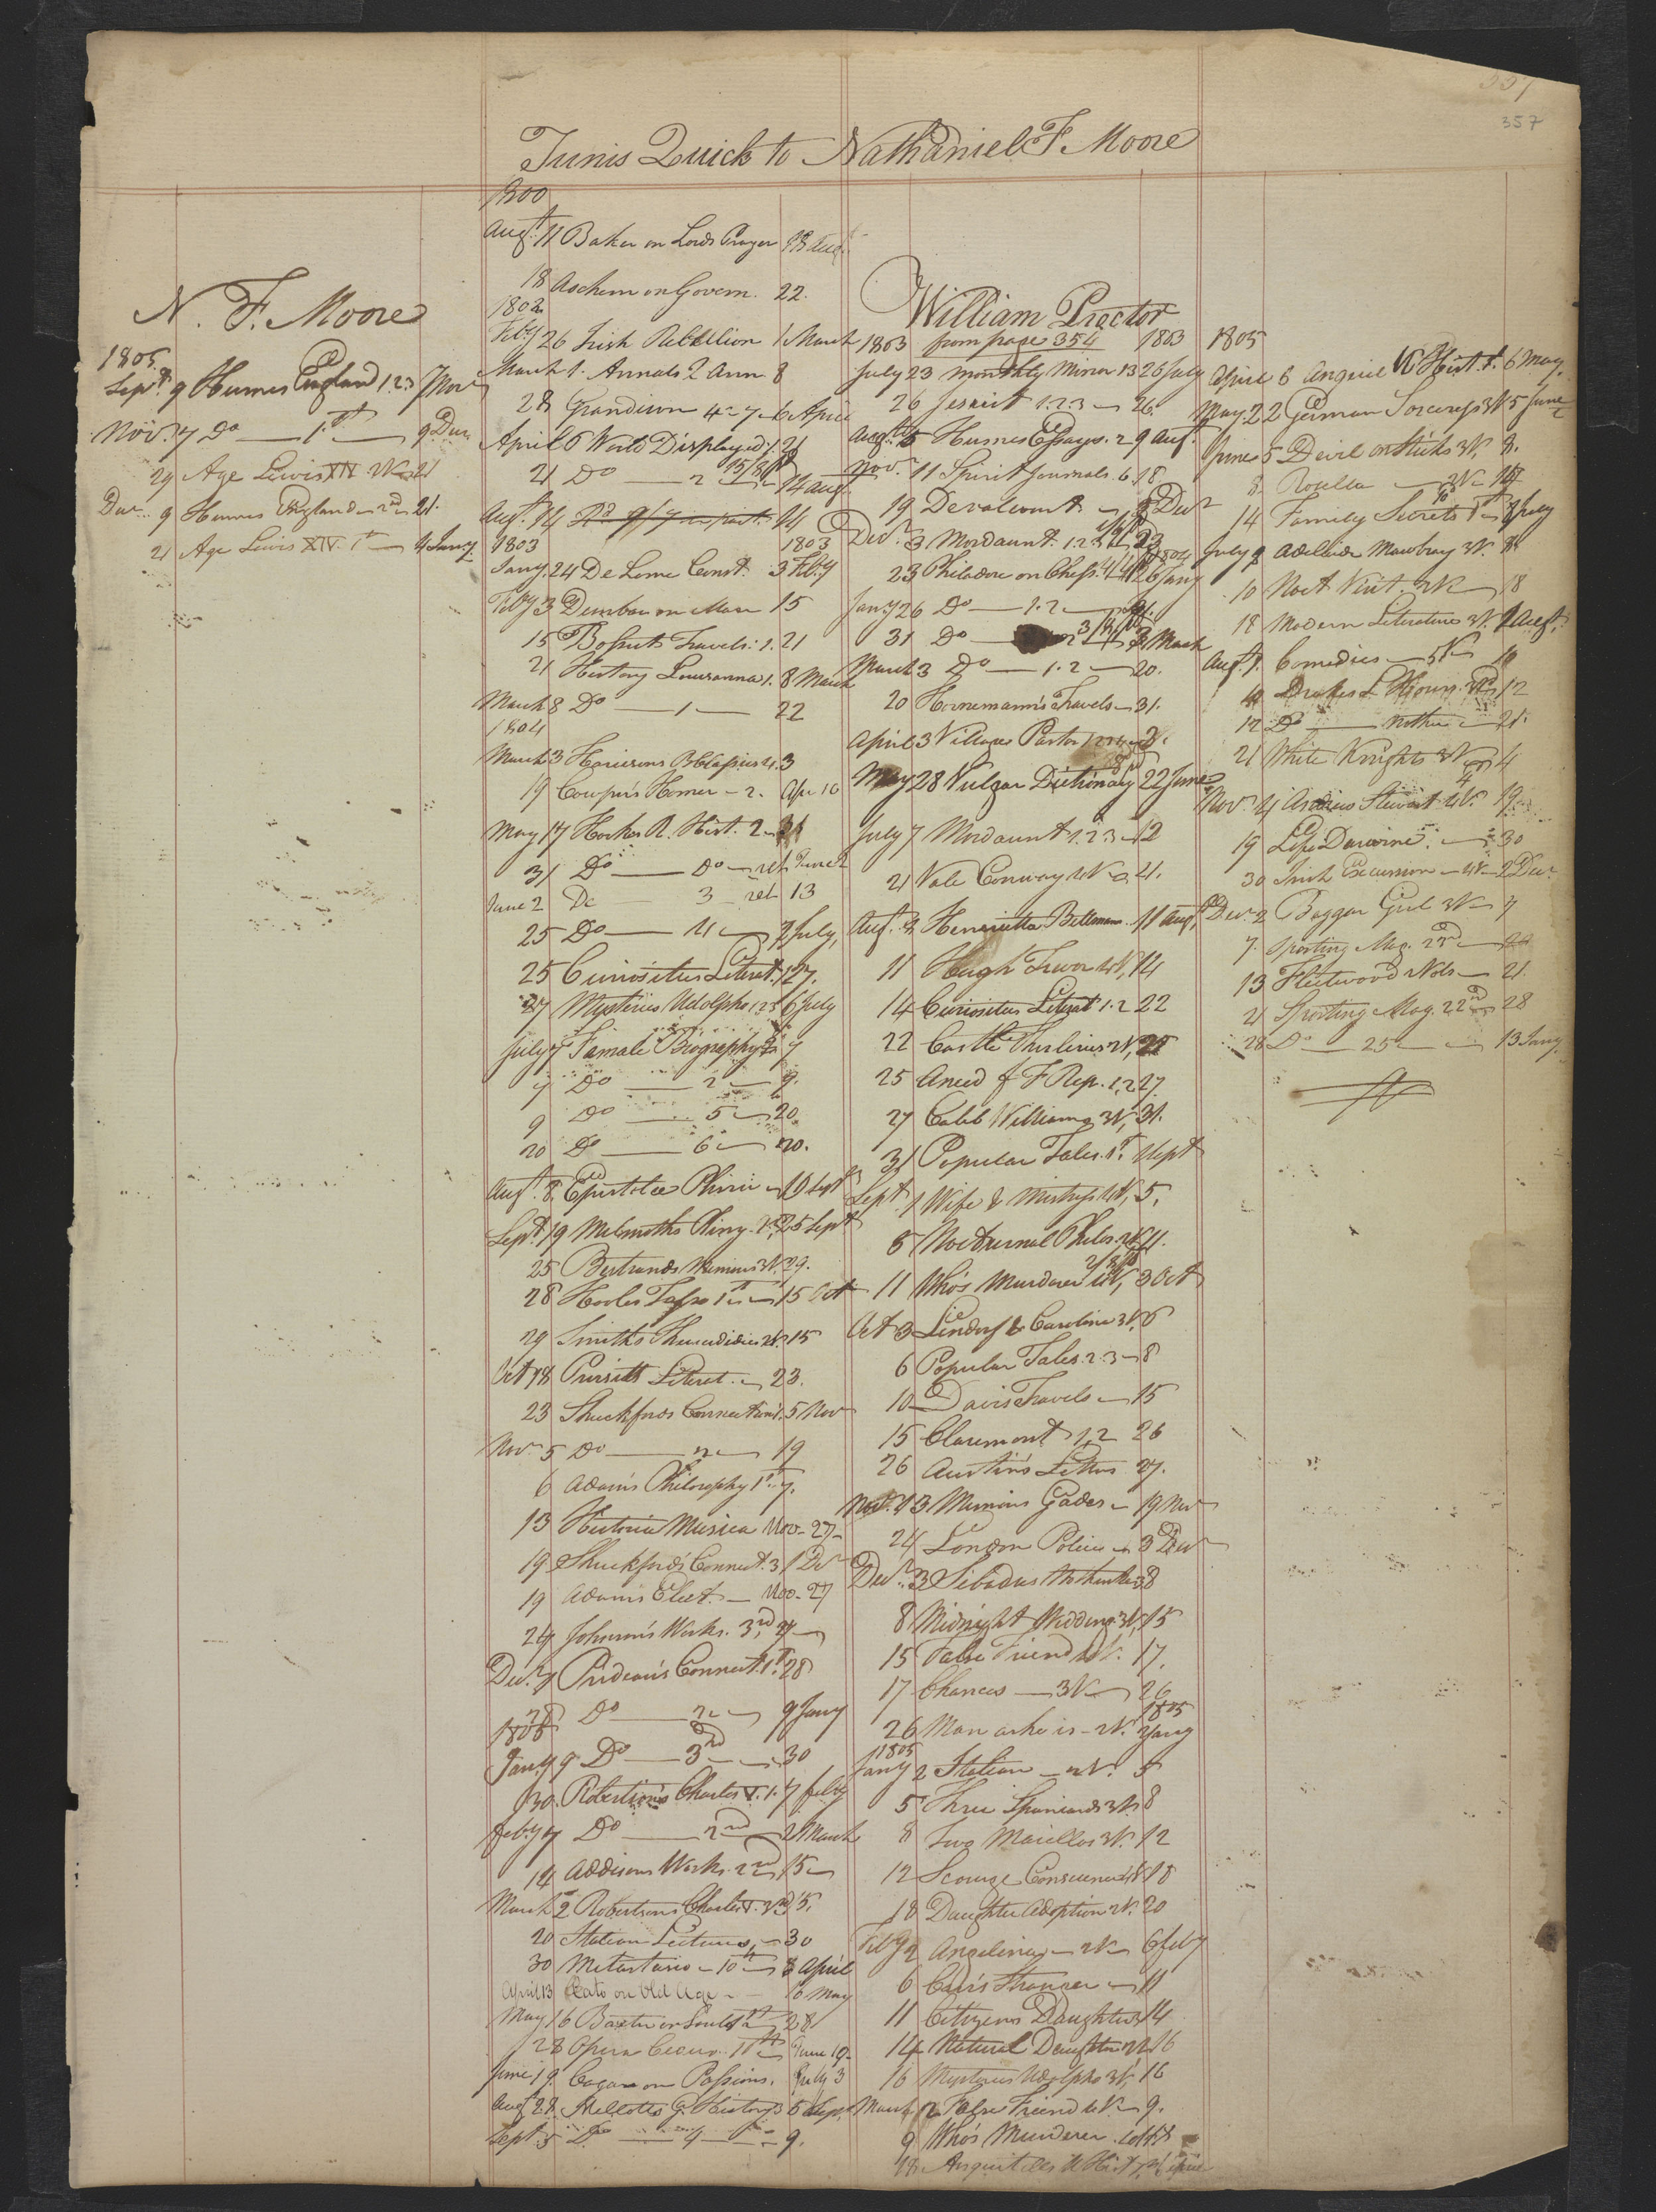 357
Tunis Quick to Nathaniel F Moore
N. F. Moore
1805
Sept. 9 Humes England 1.2.3 7 Nov
Nov. 7 Do — 1st — 9 Decr
29 Age Lewis XIV 2V 21
Decr. 9 Humes England 2nd 21.
21 Age Lewis XIV. 1st — 4 Jany
1800
Augt. 11 Baker on Lords Prayer 18 Aug.
18 Aschem on Govern. 22.
1802
Feby 26 Irish Rebellion 1 March
March 1. Annals 2 Ann 8
28 Grandison 4 7 6 April
April 6 World Displayed 1. 21
21 Do — 2 15/8/pd 14 aug
Augt. 14 14
1803 1803
Jany. 24 De Lome Const. 3 Feby
Feby 3 Dunbar on Man 15
15 Bossuts Travels. 1. 21
21 History Louisanna 1. 8 March
March 8 Do — 1 — 22
1804
March 3 3
19 Cowper's Homer - 2. Apr 16
May 17 Hookes R. Hist. 2
31 Do — Do — ret June 2
June 2 Do 3 ret 13
25 Do — 4 — 7 July
25 Curiosities Literat. 1 27.
27 Mysteries Udolpho 1 2 3 6 July
July 7 Famale Biography 7
7 Do — 2 — 9.
9 Do — 5 — 20
20 Do — 6 — 20.
Augt. 8 Epistolae Plinii — 19 Sept
Sept. 19 Melmoths Pliny. 25 Sept
25 Bertrands 3V. 29.
28 Hooles Tasso 1st — 15 Oct
29 Smiths Thucidides 2V. 15
Oct 18 Pursuits Literat. — 23.
23 Shuckfords Connection 1. 5 Nov
Nov. 5 Do — 2 — 19
6 Adams Philosophy 1st. 7.
13 Historia Musica Nov- 27-
19 Shuckfords Connect. 3 1 Dec
19 Adams Elect. — Nov- 27
24 Johnson's Works. 3rd
Decr. 7 Prideau's Connect. 1st. 28
28 Do — 2 — 9 Jany
1805
Jany. 9 Do — 3rd — 30
30. Robertsons Charles V. 1. 7 feby
feby 7 Do — 2nd — 2 March
14 Addisons Works. 2nd 15
March 2 Robertsons Charles V. 3rd 15.
20 Italian Lectures — 30
30 Metastasio — 10th — 8 April
April 13 Cato on Old Age — 16 May
May 16 Baxter on Soul 28
28 Opera Cicero. 10th June 19-
June 19. Cogan on Passions. July 3
Aug 28. Millotts G. History 5 Sep.
Sept. 5 Do — 4 — 9.
William Proctor
1803 from page 354 1803
July 23 Monthly Mirror 13 26 July
26 Jesuit 1.2.3 — 26.
Augt. 5 Humes Essays. 2 9 augt.
Nov. 11 Spirit Journals. 6. 18
19 Devalcourt — 3 Decr
Decr. 3 Mordaunt. 1.2.3 23
1804
23 Philadore on Chess. 26 Jany
Jany 26 Do — 1.2 — 31.
31 Do 3 March
March 3 Do — 1.2 — 20.
20 Hornemann's Travels — 31.
April 3 Village Pastor
May 28 Vulgar Dictionary 22 June
July 7 Mordaunt 1.2.3 — 12
21 Vale Conway 4V 21.
Augt. 2 Henrietta Bellman. 11 augt
11 Hugh Trevor 4V, 14
14 Curiosities Literat 1.2 22
22 Castle Thulerius 2V, 25
25 Anecd of F Rep. 1.2 27
27 Caleb Williams 3V, 31.
31 Popular Tales. 1st. 1 Sept
Sept 1 Wife & Mistress 4V, 5.
5 Nocturnal 11.
11 Who's Murderer 4V, 3 Oct
Oct 3 Lindorf & Caroline 3V. 6
6 Popular Tales. 2.3 — 8
10 Davis Travels — 15
15 Claremont 1,2 26
26 Austin's Letters 27.
Nov. 13 Memoirs 19 Nov
24 London Police — 3 Decr
Decr. 3 8
8 Midnight Wedding 3V, 15
15 False Friend 4V. 17.
17 Chances — 3V — 26
1805
26 Man as he is — 2V. 2 Jany
1805
Jany 2 Italian — 2V. 5
5 Three Spaniards 3V 8
8 Two Marillos 3V. 12
12 Scourge Conscience 4V 18
18 Daughter Adoption 2V. 20
Feby 2 Angelina — 2V — 6 feby
6 Stranger — 11
11 Citizens Daughter 14
14 Natural Daughter 2V 16
16 Mysteries Udolpho 3V, 16
March 2 False Friend 4V — 9.
9 Who's Murderer. 4V 18
18 Anquetilles U Hist
1805
April 6 Anquiel U Hist. 6 May.
May 22 German Sorceress 3V 5 June
June 5 Devil on Sticks 3V. 8.
8. Rosella — 2V — 14
14 Family Secrets 1st — 9 July
July 9 Adeline Mowbray 3V. 8
10 Noct Visit. 2V — 18
18 Modern Literature 3V. 1 Augt.
Augt. 1. Comedies — 5V — 10
12
12 Do — — 21.
21 White Knights 3V 4
Nov. 4 Andrew Stewart 4V. 19.
19 Life Darwine. — 30
30 Irish Excursion — 4V — 2 Decr
Decr. 2 Beggar Girl 3V — 7
7. Sporting Mag. 23rd — 20
13 Fleetwood 2Vols — 21.
21 Sporting Mag. 22nd — 28
28 Do — 25 — 13 Jany